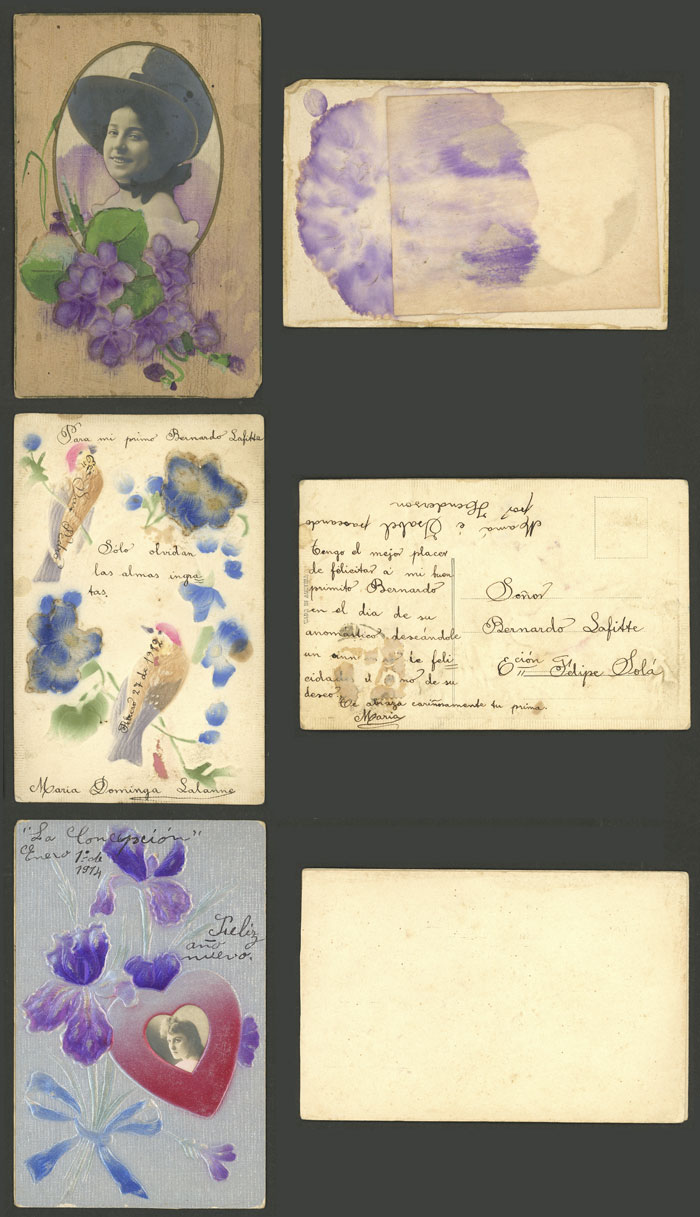 Para mi primo Bernardo Lafitte
Sólo olvidan
las almas ingra
tas.
Febrero 27 de 1912
Maria Dominga Lalanne
Mamá é Isabel
por Henderson
Tengo el mejor placer
de felicitar á mi buen
primito Bernardo
en el dia de su
onomástico deseándole
un
cidad
deseo.
Te abraza cariñosamente tu prima.
Maria
Señor
Bernardo Lafitte
Eción Felipe Solá
"La Concepción"
Enero 1º de
1914
Feliz
año
nuevo.